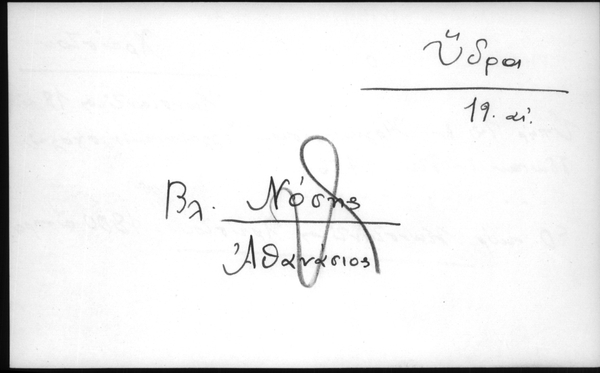 Ὕδρα
19. αἰ.
Βλ. Νόσης
Ἀθανάσιος